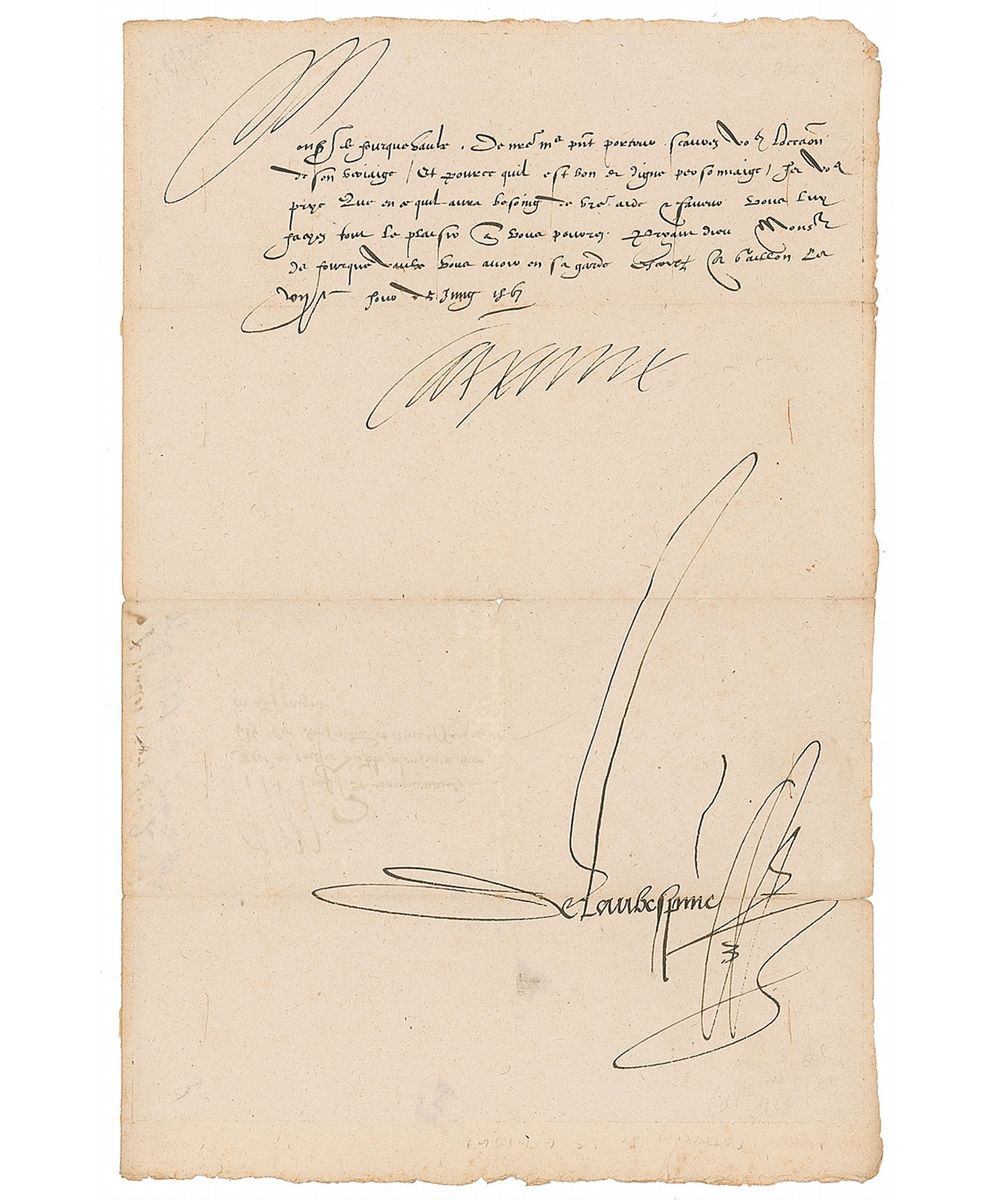 Monsr de fourquevaulx. De nre me pnt porteur scaurez vos loccaon
de son voiaige / Et pource quil est bon et digne personnaige / Je vos
prye Que en ce quil aura besoing de vre aide & faveur vous luy
faczez tout le plaisir q vous pourrez. Pryant dieu Monsr
de fourquevaulx vous avoir en sa garde Escript a Gaillon Le
jour de Juing 1567
Caterine
Delaubespine